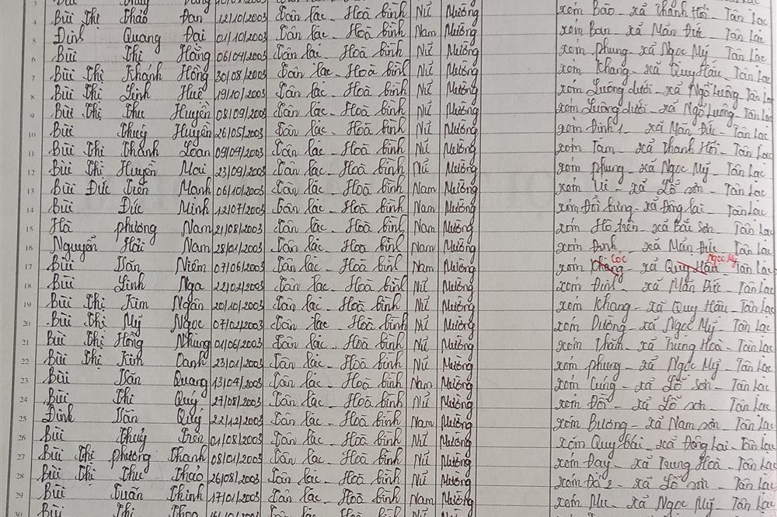 Bùi Thị Thảo Đan 12/10/2003 Tân Lạc - Hoà Bình Nữ Mường xóm Bào - xã Thanh Hối - Tân Lạc
5 Đinh Quang Đại 01/10/2003 Tân Lạc - Hoà Bình Nam Mường xóm Ban - xã Mãn Đức - Tân Lạc
6 Bùi Thị Hằng 06/04/2003 Tân Lạc - Hoà Bình Nữ Mường xóm Phung - xã Ngọc Mỹ - Tân Lạc
7 Bùi Thị Khánh Hồng 30/08/2003 Tân Lạc - Hoà Bình Nữ Mường xóm Khang - xã Quy Hậu - Tân Lạc
8 Bùi Thị Linh Huế 19/10/2003 Tân Lạc - Hoà Bình Nữ Mường xóm Luông dưới - xã Ngổ Luông - Tân Lạc
9 Bùi Thị Thu Huyền 08/09/2003 Tân Lạc - Hoà Bình Nữ Mường xóm Luông dưới - xã Ngổ Luông - Tân Lạc
10 Bùi Thuý Huyền 26/05/2003 Tân Lạc - Hoà Bình Nữ Mường xóm Định 1 - xã Mãn Đức - Tân Lạc
11 Bùi Thị Thanh Loan 09/09/2003 Tân Lạc - Hoà Bình Nữ Mường xóm Tam - xã Thanh Hối - Tân Lạc
12 Bùi Thị Huyền Mai 23/09/2003 Tân Lạc - Hoà Bình Nữ Mường xóm Phung - xã Ngọc Mỹ - Tân Lạc
13 Bùi Đức Trần Mạnh 06/10/2003 Tân Lạc - Hoà Bình Nam Mường xóm - xã Lỗ Sơn - Tân Lạc
14 Bùi Đức Minh 12/07/2003 Tân Lạc - Hoà Bình Nam Mường xóm Đồi Bưng - xã Đông Lai - Tân Lạc
15 Hà Phương Nam 21/08/2003 Tân Lạc - Hoà Bình Nam Mường xóm Hồ trên - xã - Tân Lạc
16 Nguyễn Hải Nam 28/01/2003 Tân Lạc - Hoà Bình Nam Mường xóm Định - xã Mãn Đức - Tân Lạc
17 Bùi Văn Niệm 07/06/2003 Tân Lạc - Hoà Bình Nam Mường xóm Khang Cóc - xã Quy Hậu Ngọc Mỹ - Tân Lạc
18 Bùi Linh Nga 22/02/2003 Tân Lạc - Hoà Bình Nữ Mường xóm Định - xã Mãn Đức - Tân Lạc
19 Bùi Thị Kim Ngân 20/10/2003 Tân Lạc - Hoà Bình Nữ Mường xóm Khang - xã Quy Hậu - Tân Lạc
20 Bùi Thị Mỹ Ngọc 07/02/2003 Tân Lạc - Hoà Bình Nữ Mường xóm Dương - xã Ngọc Mỹ - Tân Lạc
21 Bùi Thị Hồng Nhung 04/06/2003 Tân Lạc - Hoà Bình Nữ Mường xóm Thăm - xã Trung Hoà - Tân Lạc
22 Bùi Thị Kim Oanh 23/01/2003 Tân Lạc - Hoà Bình Nữ Mường xóm Phung - xã Ngọc Mỹ - Tân Lạc
23 Bùi Văn Quang 13/04/2003 Tân Lạc - Hoà Bình Nam Mường xóm Cúng - xã Lỗ Sơn - Tân Lạc
24 Bùi Thị Quý 27/08/2003 Tân Lạc - Hoà Bình Nữ Mường xóm Đồi - xã Lỗ Sơn - Tân Lạc
25 Đinh Văn Quý 22/12/2003 Tân Lạc - Hoà Bình Nam Mường xóm Bương - xã Nam Sơn - Tân Lạc
26 Bùi Thuỷ Triều 01/08/2003 Tân Lạc - Hoà Bình Nữ Mường xóm Quy Bái - xã Đông Lai - Tân Lạc
27 Bùi Thị Phương Thanh 08/01/2003 Tân Lạc - Hoà Bình Nữ Mường xóm Đay - xã Trung Hoà - Tân Lạc
28 Bùi Thị Thu Thảo 26/08/2003 Tân Lạc - Hoà Bình Nữ Mường xóm - xã Lỗ Sơn - Tân Lạc
29 Bùi Tuấn Thịnh 17/01/2003 Tân Lạc - Hoà Bình Nam Mường xóm Mu - xã Ngọc Mỹ - Tân Lạc
30 Bùi Thị